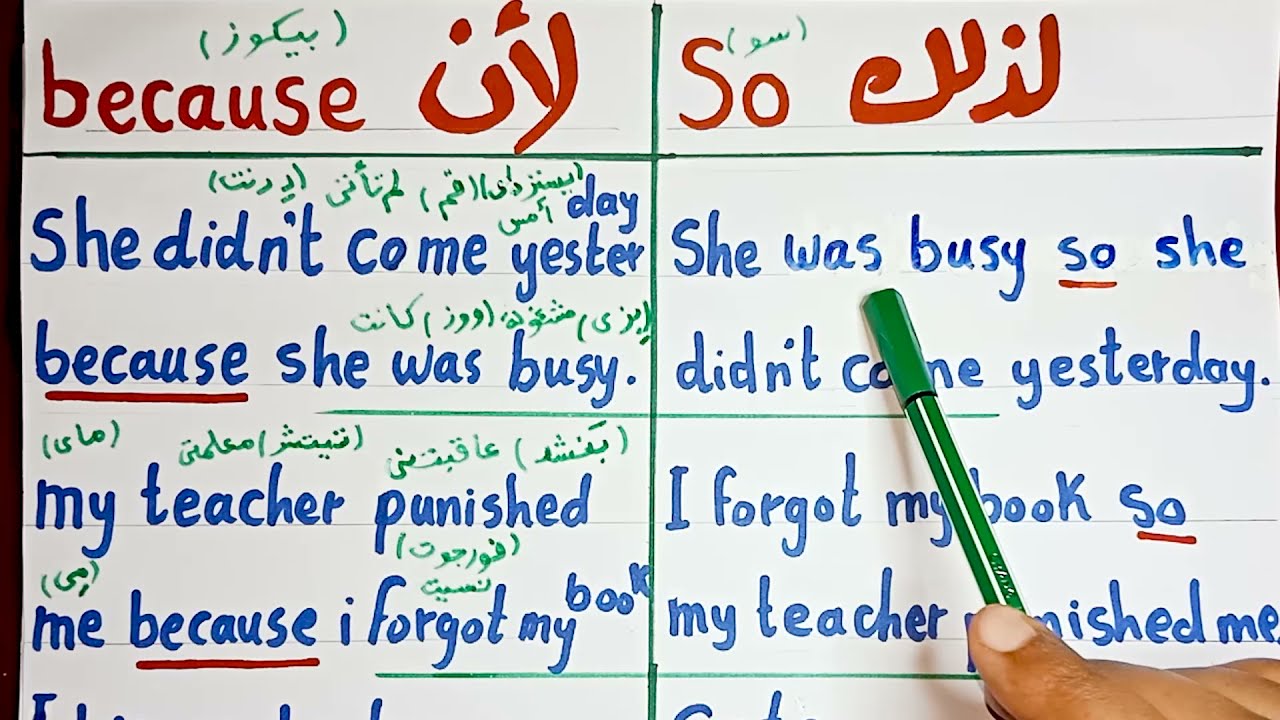 (بيكوز)
because لأن
(سو)
So لذلك
(دِدنت) لم تأتى (قم) (يسترداى)
أمس
She didn't come yesterday
(بزى) مشغولة (ووز) كانت
because she was busy.
(ماى) معلمتى (تيتشر) عاقبتنى (بَنشد)
my teacher punished
(مِى) (فورجوت)
نسيت
me because i forgot my book
She was busy so she
didn't come yesterday.
I forgot my book so
my teacher punished me.